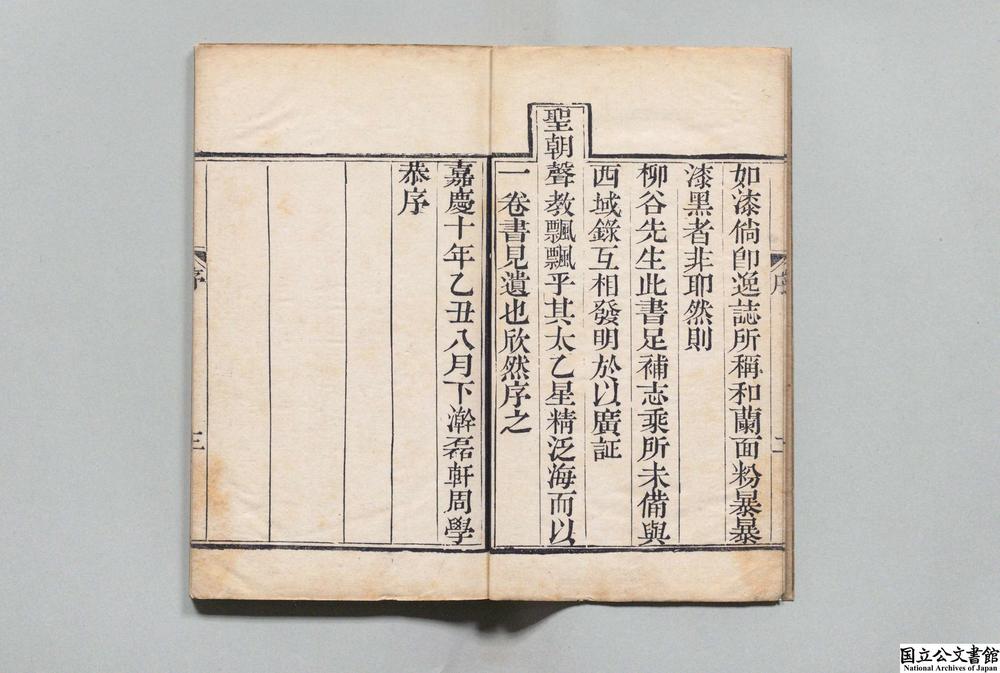 如漆倘卽逸誌所稱和蘭面粉暴暴
漆黑者非耶然則
柳谷先生此書足補志乘所未備與
西域錄互相發明於以廣証
聖朝聲教飄飄乎其太乙星精泛海而以
一卷書見遺也欣然序之
序
二
嘉慶十年乙丑八月下澣磊軒周學
恭序
序
三
国立公文書館
National Archives of Japan